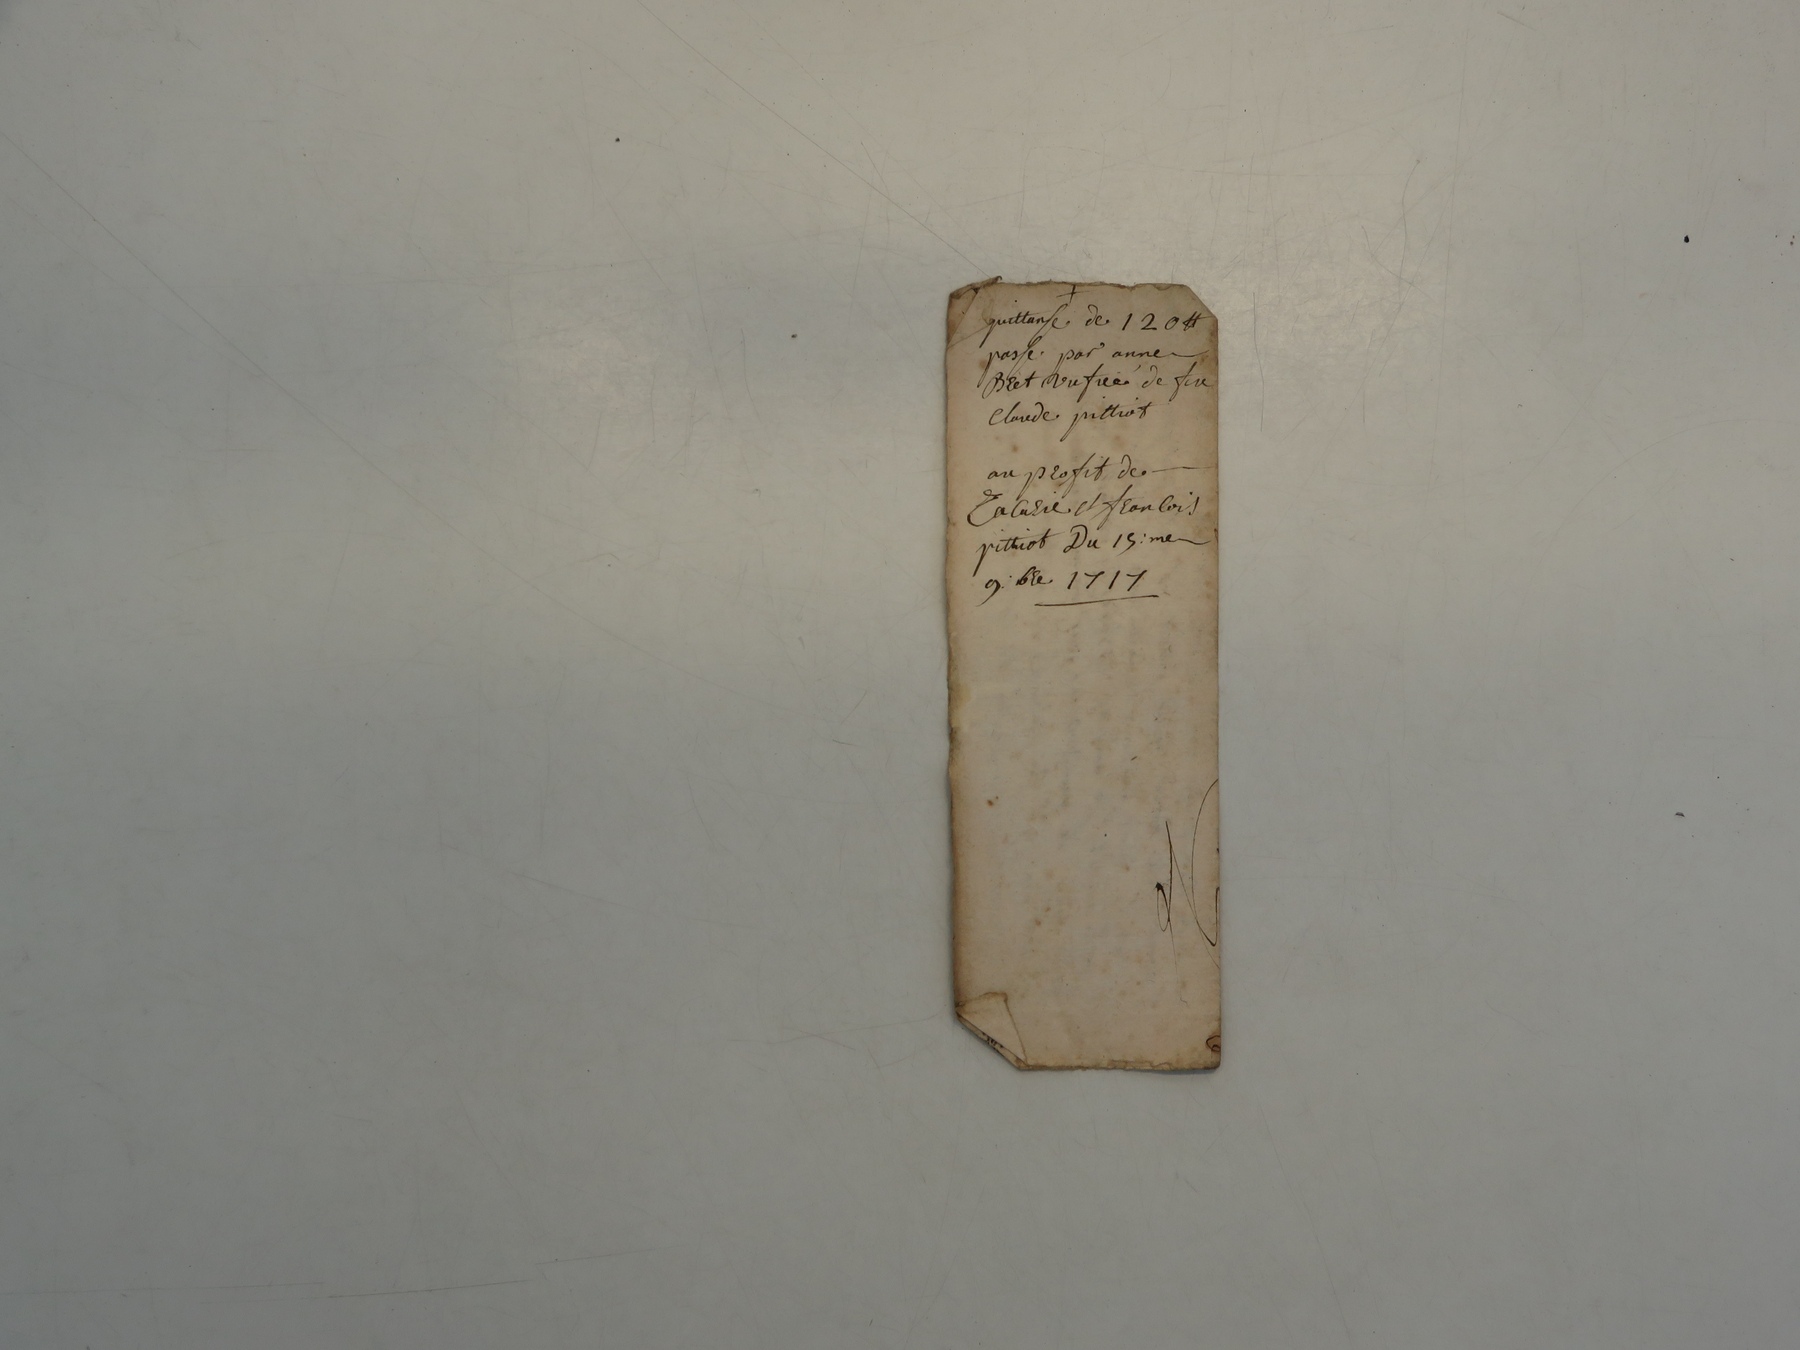 quittanse de 120 ₶
passé par anne
Bret vefve de feu
Claude pittiot
au profit de
Zacarie et francois
pittiot Du 15:me
9:bre 1717